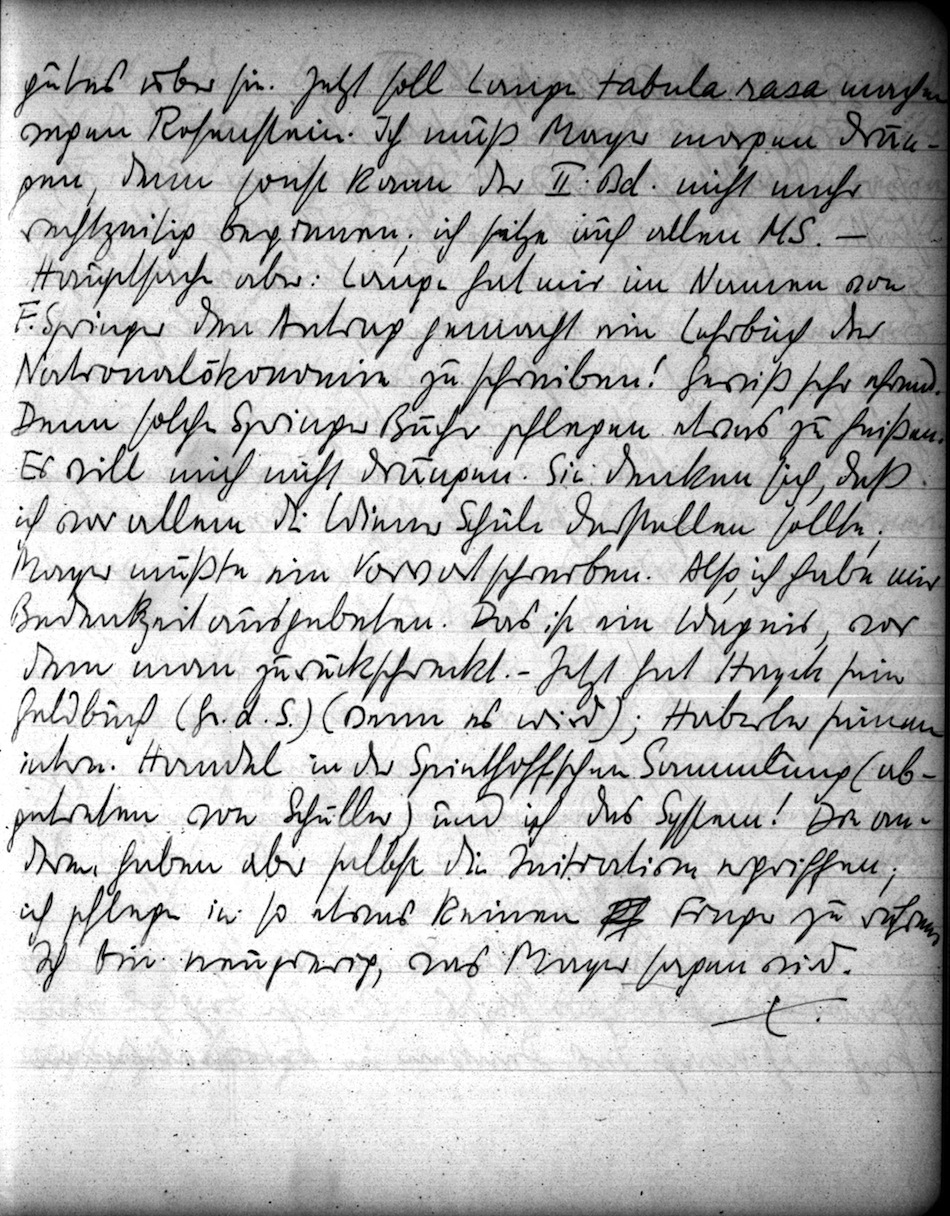 gutes über sie. Jetzt soll Lange tabula rasa machen
wegen Rosenstein. Ich muß Mayer morgen drän-
gen, denn sonst kann der II. Bd. nicht mehr
rechtzeitig beginnen; ich sitze auf allen MS. —
Hauptsache aber: Lange hat mir im Namen von
F. Springer den Antrag gemacht ein Lehrbuch der
Nationalökonomie zu schreiben! Gewiß sehr ehrend.
Denn solche Springer Bücher pflegen etwas zu heißen.
Er will mich nicht drängen. Sie denken sich, daß
ich vor allem die Wiener Schule darstellen sollte;
Mayer müßte ein Vorwort schreiben. Also, ich habe mir
Bedenkzeit ausgebeten. Das ist ein Wagnis, vor
dem man zurückschreckt. – Jetzt hat Hayek sein
Geldbuch (Gr. d. S.) (wenn es wird); Haberler seinen
intern. Handel in der Spiethoffschen Sammlung (ab-
getreten von Schüller) und ich das System! Die an-
deren haben aber selbst die Initiative ergriffen;
ich pflege in so etwas keinen Finger zu rühren
Ich bin neugierig, was Mayer sagen wird.